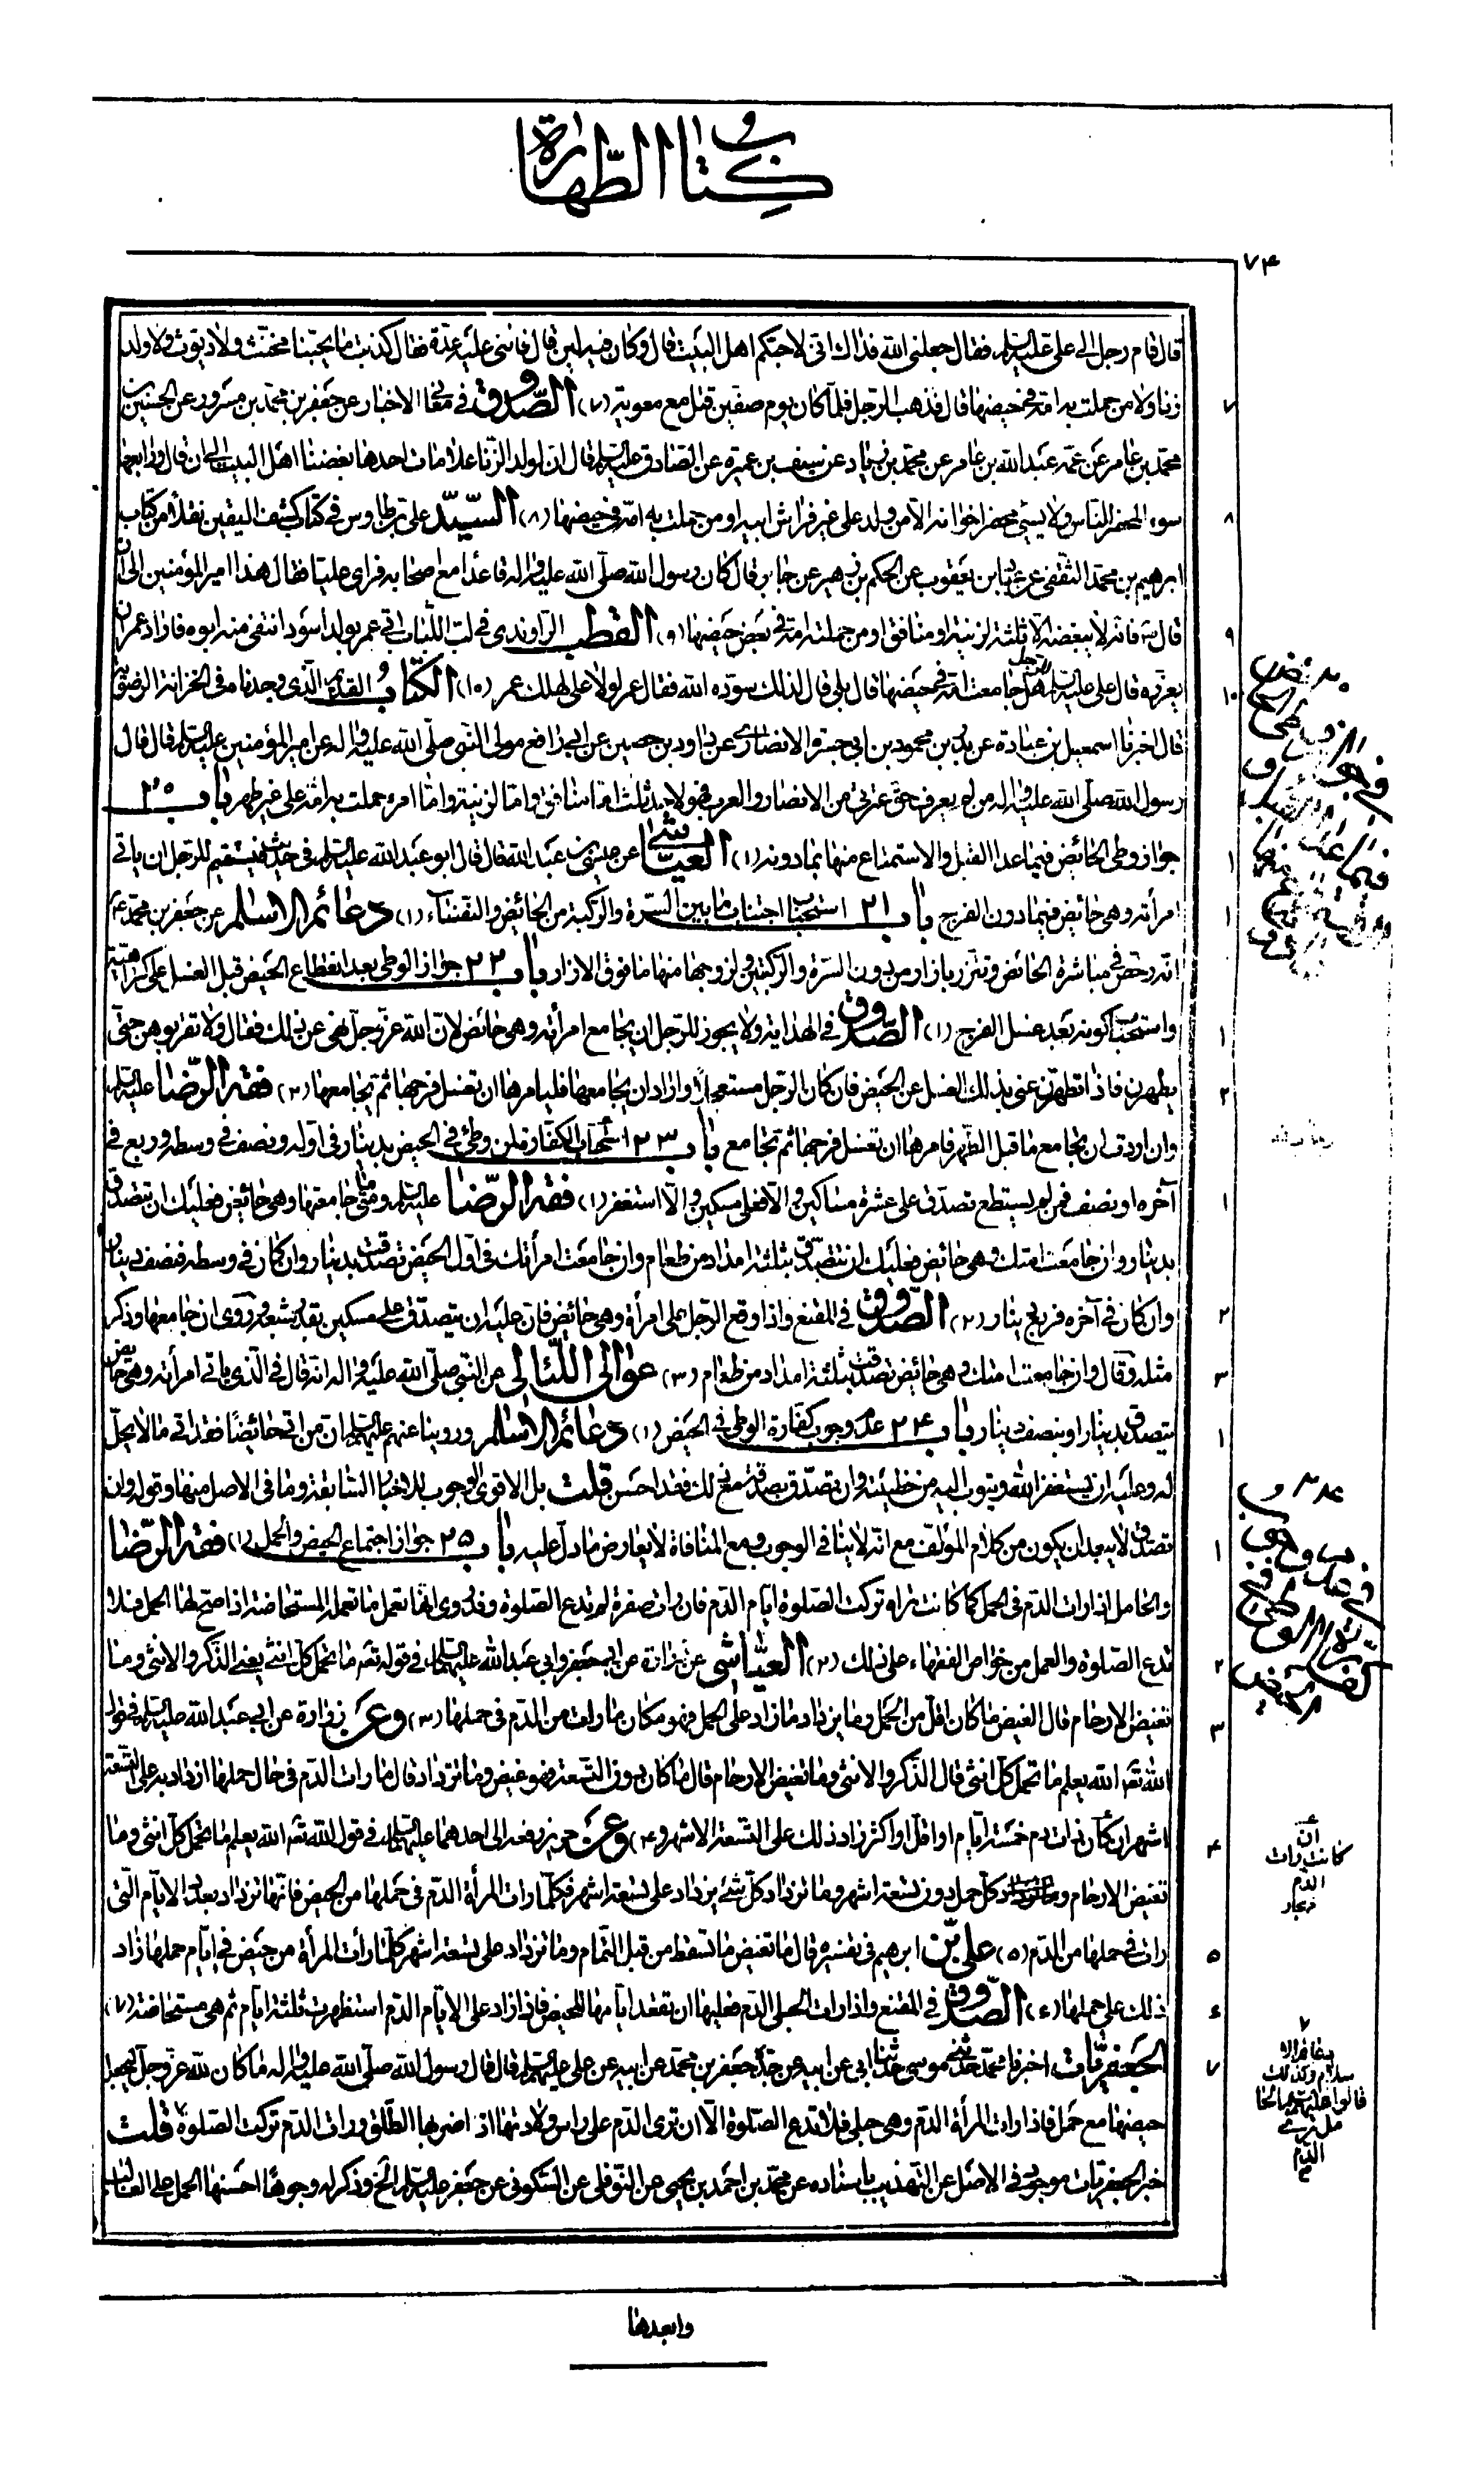 كتاب الطهارة
٧٤
قال قام رجل الى علي عليه السلام فقال جعلني الله فداك اني لاحبكم اهل البيت قال وكان فيه لين قال فاثنى عليه عدة فقال كذبت ما يحبنا مخنث ولا ديوث ولا ولد
زنا ولا من حملت به امه في حيضها قال فذهب الرجل فلما كان يوم صفين قتل مع معوية (٧) الصدوق في معاني الاخبار عن جعفر بن محمد بن مسرور عن الحسين بن
محمد بن عامر عن عمه عبد الله بن عامر عن محمد بن زياد عن سيف بن عميرة عن الصادق عليه السلام قال ان لولد الزنا علامات احدها بغضنا اهل البيت الى ان قال ورابعها
سوء المحضر للناس ولا يسيئ محضر اخوانه الا من ولد على غير فراش ابيه او من حملت به امه في حيضها (٨) السيد علي بن طاوس في كتاب كشف اليقين نقلا من كتاب
ابرهيم بن محمد الثقفي عن عباد بن يعقوب عن الحكم بن زهير عن جابر قال كان رسول الله صلى الله عليه واله قاعدا مع اصحابه فراى عليا فقال هذا امير المؤمنين الى ان
قال فانه لا يبغضه الا ثلثة لزنية او منافق او من حملته امه في بعض حيضها (٩) القطب الراوندي في لب اللباب اتي عمر بولد اسود انتفى منه ابوه فاراد عمر ان
يعزره قال علي عليه السلام للرجل هل جامعت امه في حيضها قال بلى قال لذلك سوده الله فقال عمر لولا علي لهلك عمر (١٠) الكتاب القديم الذي وجدناه في الخزانة الرضوية
قال اخبرنا اسمعيل بن عبادة عن بكر بن محمود بن ابي جسر الانصاري عن داود بن حصين عن ابي رافع مولى النبي صلى الله عليه واله عن امير المؤمنين عليه السلام قال قال
رسول الله صلى الله عليه واله من لم يعرف حق عترتي من الانصار والعرب فهو لاحد ثلث اما منافق واما لزنية واما امرء حملت به امه على غير طهر باب ٢٠
جواز وطئ الحائض فيما عدا القبل والاستمتاع منها بما دونه (١) العياشي عن عيسى بن عبد الله قال قال ابو عبد الله عليه السلام في حديث فيستقيم للرجل ان ياتي
امرأته وهي حائض فيما دون الفرج باب ٢١ استحباب اجتناب ما بين السرة والركبة من الحائض والنفساء (١) دعائم الاسلام عن جعفر بن محمد ع
انه رخص في مباشرة الحائض وتتزر بازار من دون السرة والركبتين ولزوجها منها ما فوق الازار باب ٢٢ جواز الوطى بعد انقطاع الحيض قبل الغسل على كراهية
واستحباب كونه بعد غسل الفرج (١) الصدوق في الهداية ولا يجوز للرجل ان يجامع امرأته وهي حائض لان الله عز وجل نهى عن ذلك فقال ولا تقربوهن حتى
يطهرن فاذا تطهرن عنى بذلك الغسل عن الحيض فان كان الرجل مستعجلا واراد ان يجامعها فليامرها ان تغسل فرجها ثم يجامعها (٢) فقه الرضا عليه السلام
وان اردت ان تجامع ما قبل الطهر فامرها ان تغسل فرجها ثم تجامع باب ٢٣ استحباب الكفارة لمن وطئ في الحيض بدينار في اوله ونصف في وسطه وربع في
آخره او نصف فمن لم يستطع تصدق على عشرة مساكين والا فعلى مسكين والا استغفر (١) فقه الرضا عليه السلام ومتى ما جامعتها وهي حائض فعليك ان تتصدق
بدينار وان جامعت امتك وهي حائض فعليك ان تتصدق بثلثة امداد من طعام وان جامعت امرأتك في اول الحيض تصدقت بدينار وان كان في وسطه فنصف دينار
وان كان في آخره فربع دينار (٢) الصدوق في المقنع واذا وقع الرجل على امرأة وهي حائض فان عليه ان يتصدق على مسكين بقدر شبعه وروي ان جامعها وذكر
مثله وقال وان جامعت امتك وهي حائض تصدقت بثلثة امداد من طعام (٣) عوالي اللئالي عن النبي صلى الله عليه واله انه قال في الذي ياتي امرأته وهي حائض
يتصدق بدينار او بنصف دينار باب ٢٤ عدم وجوب كفارة الوطى في الحيض (١) دعائم الاسلام وروينا عنهم عليهم السلام ان من اتى حائضا فقد اتى ما لا يحل
له وعليه ان يستغفر الله ويتوب اليه من خطيئته وان تصدق بصدقة مع ذلك فقد احسن قلت بل الاقوى الوجوب للاخبار السابقة وما في الاصل منها وقوله وان
تصدق لا يبعد ان يكون من كلام المؤلف مع انه لا ينافي الوجوب ومع المنافاة لا يعارض ما دل عليه باب ٢٥ جواز اجتماع الحيض والحمل (١) فقه الرضا
والحامل اذا رات الدم في الحمل كما كانت تراه تركت الصلوة ايام الدم فان رات صفرة لم تدع الصلوة وقد روي انها تعمل ما تعمله المستحاضة اذا صح لها الحمل فلا
تدع الصلوة والعمل من خواص الفقهاء على ذلك (٢) العياشي عن زرارة عن ابي جعفر وابي عبد الله عليهما السلام في قوله تعم ما تحمل كل انثى يعني الذكر والانثى وما
تغيض الارحام قال الغيض ما كان اقل من الحمل وما يزداد ما زاد على الحمل فهو مكان ما رات من الدم في حملها (٣) وعن زرارة عن ابي عبد الله عليه السلام في قول
الله تعم الله يعلم ما تحمل كل انثى قال الذكر والانثى وما تغيض الارحام قال ما كان دون التسعة فهو غيض وما تزداد قال ما رات الدم في حال حملها ازداد به على التسعة
اشهر ان كان رات دم خمسة ايام او اقل او اكثر زاد ذلك على التسعة الاشهر (٤) وعن حريز رفعه الى احدهما عليهما السلام في قول الله تعم الله يعلم ما تحمل كل انثى وما
تغيض الارحام وما تزداد كل حمل دون تسعة اشهر وما تزداد كل شئ يزداد على تسعة اشهر فكلما رات المرأة الدم في حملها من الحيض فانها تزداد بعدد الايام التي
رات في حملها من الدم (٥) علي بن ابرهيم في تفسيره قال ما تغيض ما تسقط من قبل التمام وما تزداد على تسعة اشهر كلما رأت المرأة من حيض في ايام حملها زاد
ذلك على حملها (٦) الصدوق في المقنع واذا رات الحبلى الدم فعليها ان تقعد ايامها للحيض فاذا زاد على الايام الدم استظهرت ثلثة ايام ثم هي مستحاضة (٧)
الجعفريات اخبرنا محمد حدثني موسى حدثنا ابي عن ابيه عن جده جعفر بن محمد عن ابيه عن علي عليهم السلام قال قال رسول الله صلى الله عليه واله ما كان الله عز وجل ليجعل
حيضها مع حمل فاذا رات المرأة الدم وهي حبلى فلا تدع الصلوة الا ان ترى الدم على راس ولادتها اذا ضربها الطلق ورات الدم تركت الصلوة قلت
خبر الجعفريات موجود في الاصل عن التهذيب باسناده عن محمد بن احمد بن يحيى عن النوفلي عن السكوني عن جعفر عليه السلام الخ وذكر له وجوها احسنها الحمل على الغالب
ان
كانت رات
الدم
وابعدها